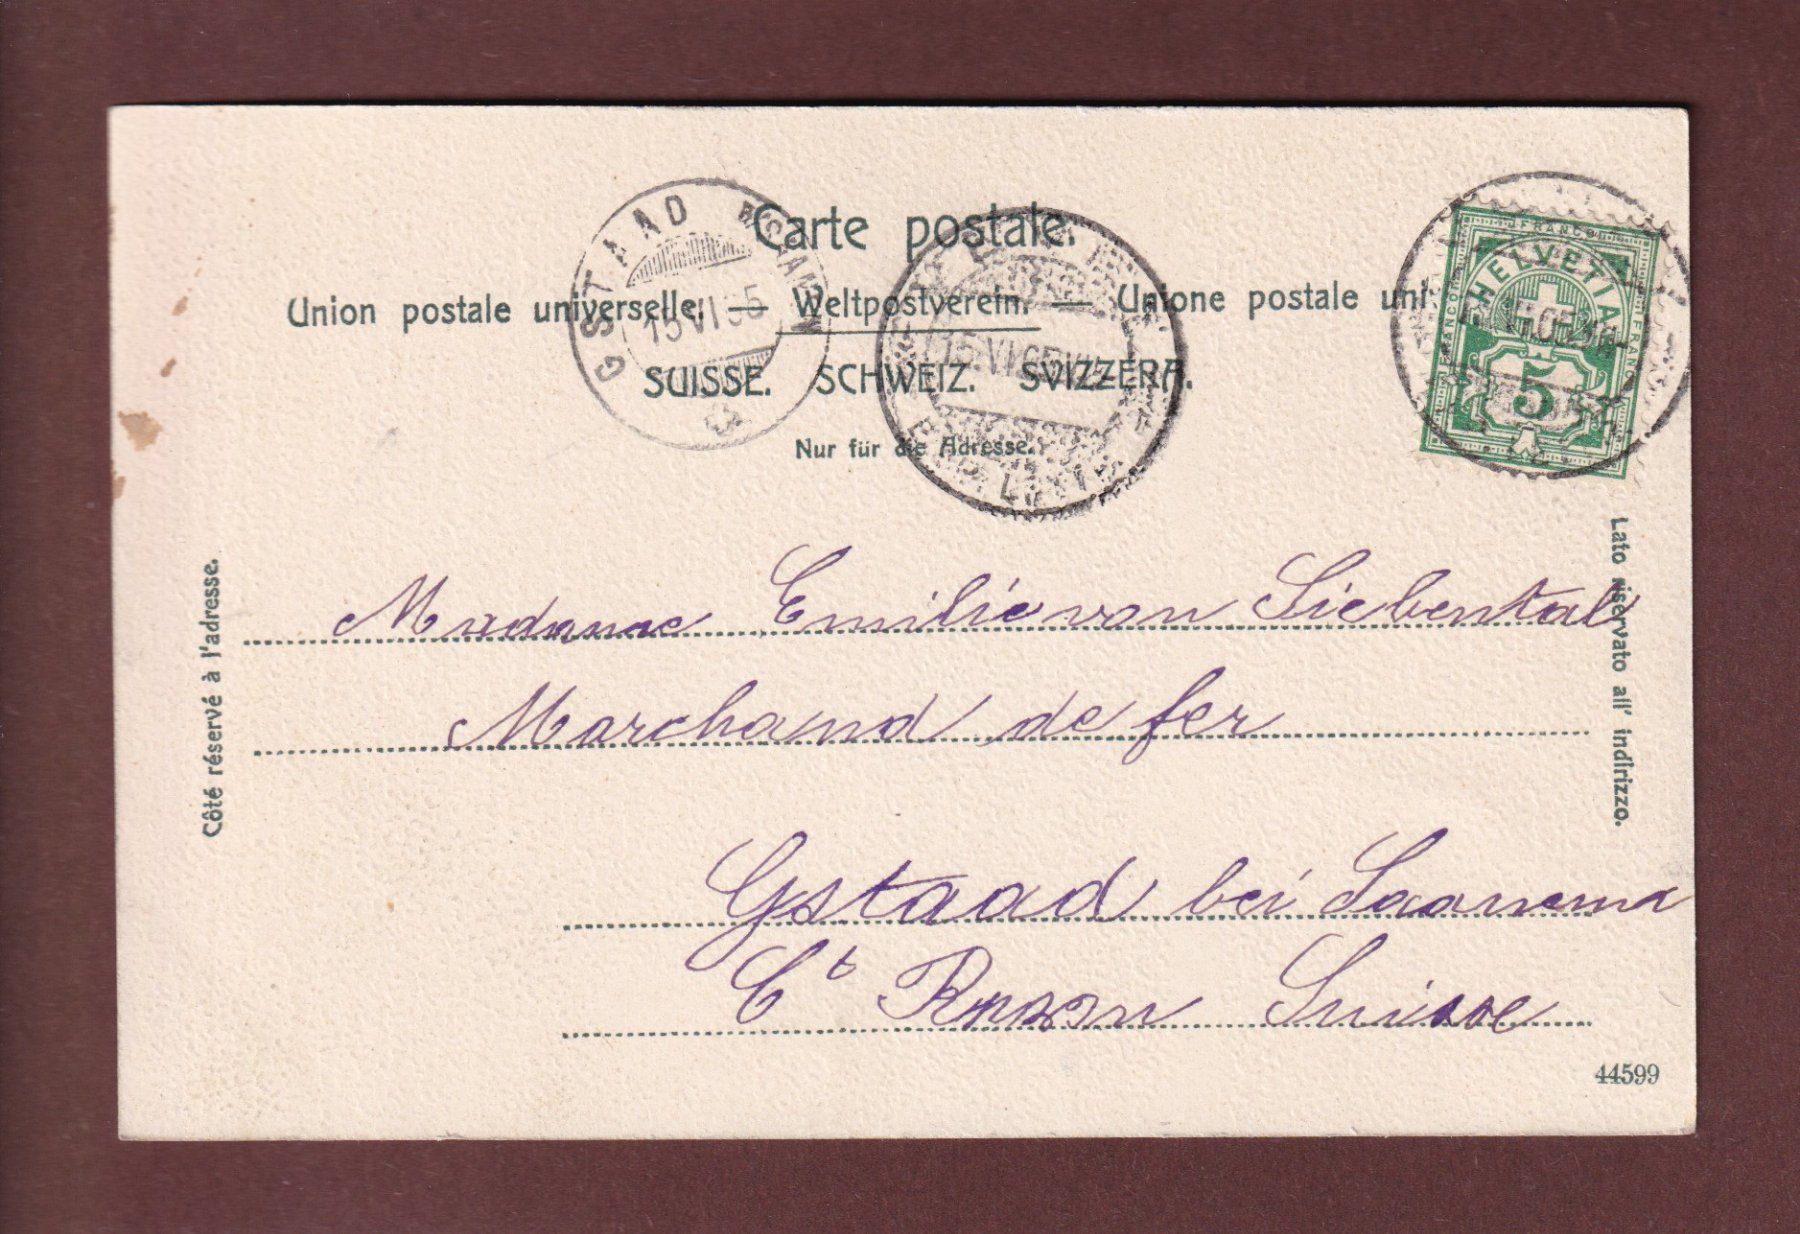 Carte postale.
Union postale universelle. — Weltpostverein. — Unione postale uni
SUISSE. SCHWEIZ. SVIZZERA.
Nur für die Adresse.
GSTAAD
15 VI 05
FRANCO
HELVETIA
5
Côté réservé à l'adresse.
Lato riservato all' indirizzo.
Madame Emilie von Siebental
Marchand de fer
Gstaad bei Saanen
Ct Suisse
44599